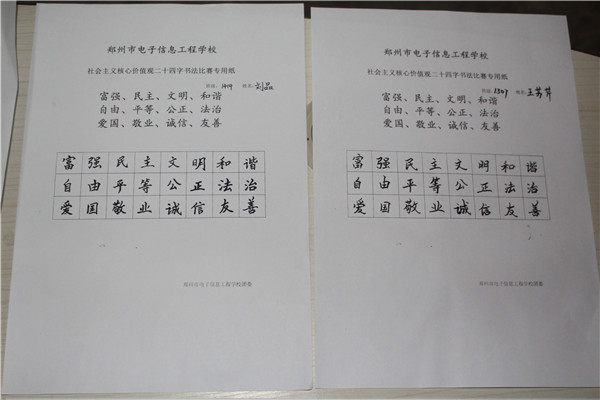 郑州市电子信息工程学校
社会主义核心价值观二十四字书法比赛专用纸
班级: 1404 姓名: 刘晶
富强、民主、文明、和谐
自由、平等、公正、法治
爱国、敬业、诚信、友善
富强民主文明和谐
自由平等公正法治
爱国敬业诚信友善
郑州市电子信息工程学校团委
郑州市电子信息工程学校
社会主义核心价值观二十四字书法比赛专用纸
班级: 1307 姓名: 王
富强、民主、文明、和谐
自由、平等、公正、法治
爱国、敬业、诚信、友善
富强民主文明和谐
自由平等公正法治
爱国敬业诚信友善
郑州市电子信息工程学校团委